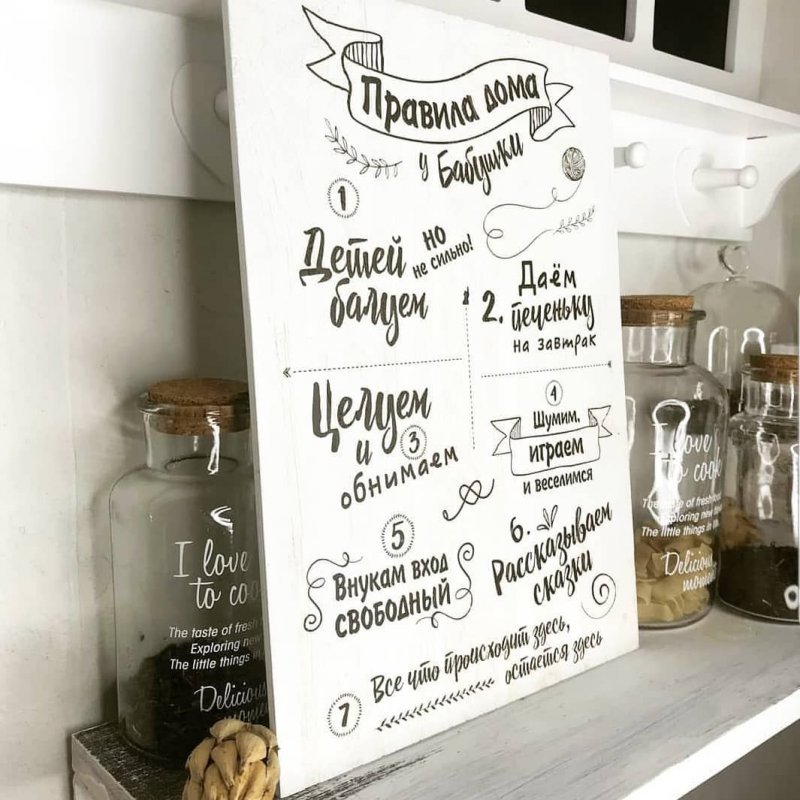 Правила дома
у Бабушки
1
Детей но
не сильно!
балуем
2. Даём
печеньку
на завтрак
Целуем
и 3
обнимаем
4
Шумим,
играем
и веселимся
5
Внукам вход
свободный
6.
Рассказываем
сказки
7 Все что происходит здесь,
остается здесь
I love
to
The taste of fresh
Exploring new
The little things in
Delicious
I love
to cook
The taste of fresh
Exploring new
The little things in
Delicious
moments